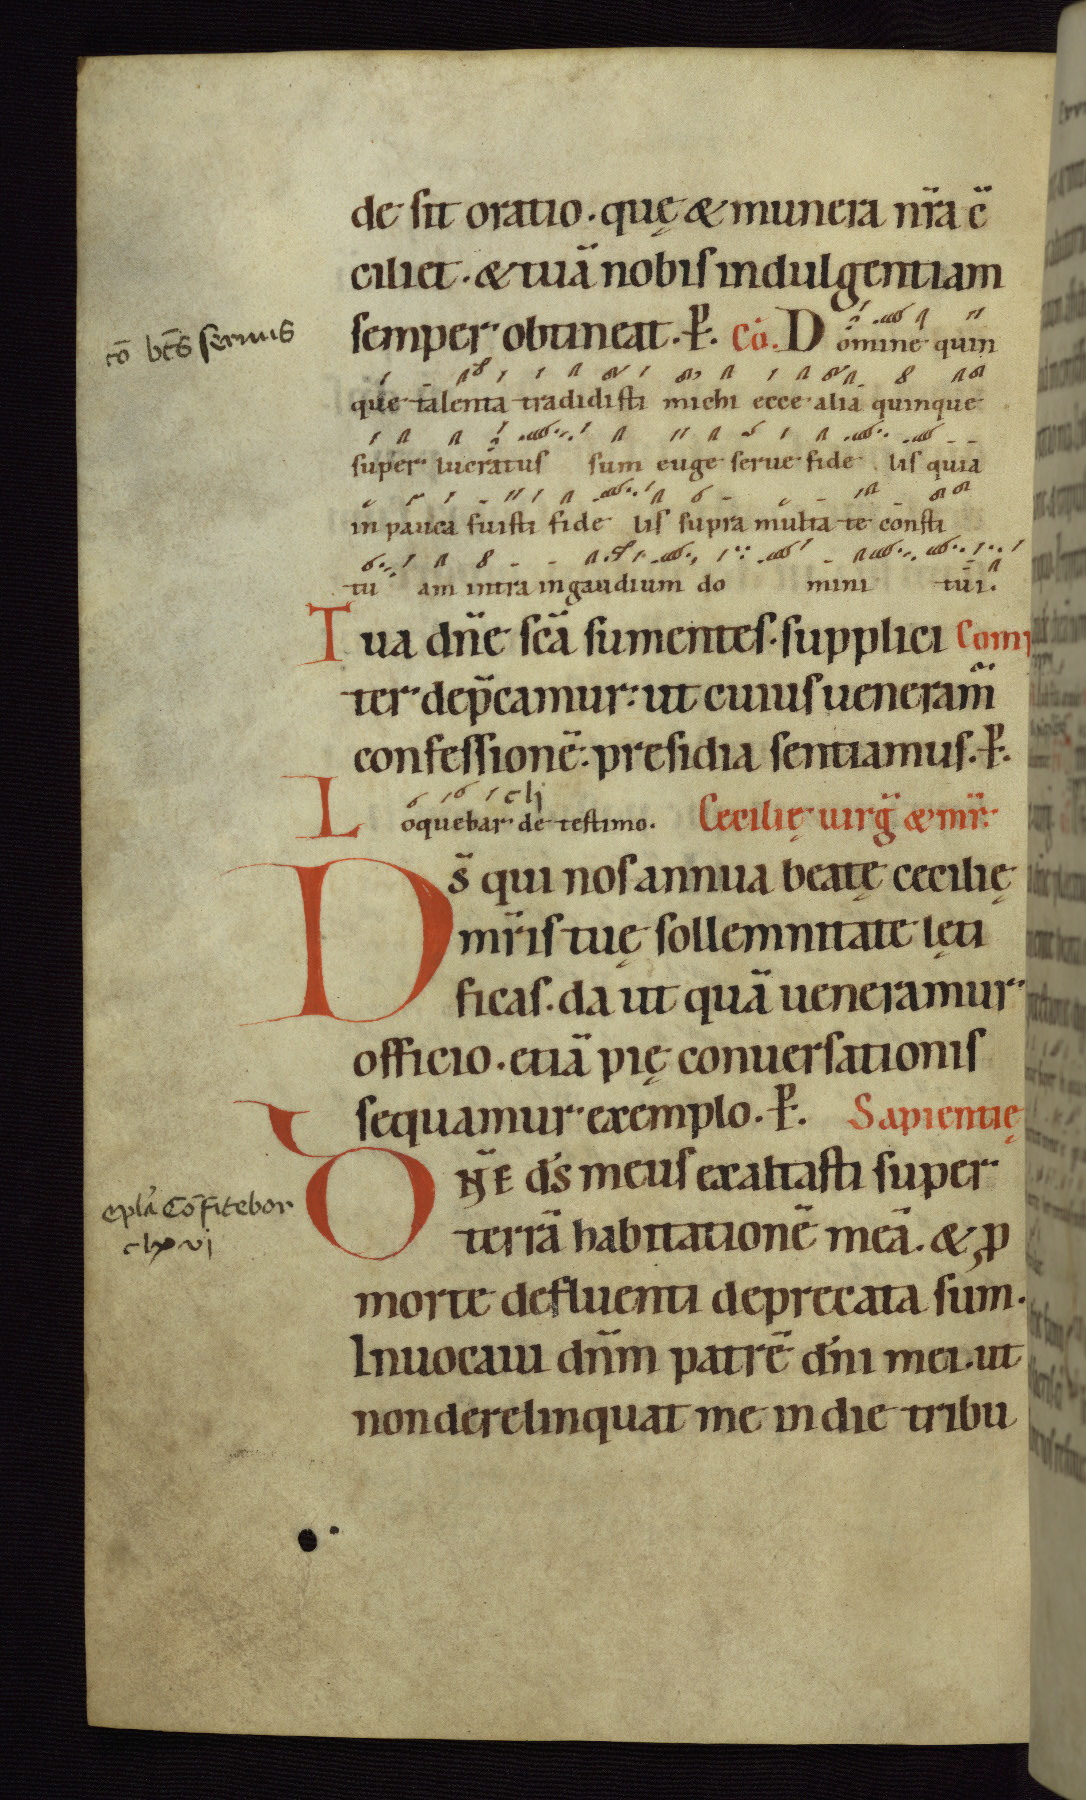 de sit oratio. quę & munera nr̃a c̃
ciliet. & tuã nobis indulgentiam
semper obtineat. P. Cõ. Domine quin
que talenta tradidisti michi ecce alia quinque
super lucratus sum euge serue fide lis quia
in pauca fuisti fide lis supra multa te consti
tu am intra in gaudium do mini tui.
Tua dñe scã sumentes. supplici Com
ter dep̃camur: ut cuius ueneram̃
confessionẽ: presidia sentiamus. P.
Loquebar de testimo. clj Cecilię uirg̃ & mr̃.
Ds̃ qui nos annua beatę cecilię
mr̃is tuę sollemnitate lęti
ficas. da ut quã ueneramur
officio. etiã pię conuersationis
sequamur exemplo. P. Sapientię
DÑE ds̃ meus exaltasti super
terrã habitationẽ meã. & ꝓ
morte defluenti deprecata sum.
Inuocaui dñm patrẽ dñi mei. ut
non derelinquat me in die tribu
cõ bt̃s seruus
epl̃a Cõfitebor
clxvi